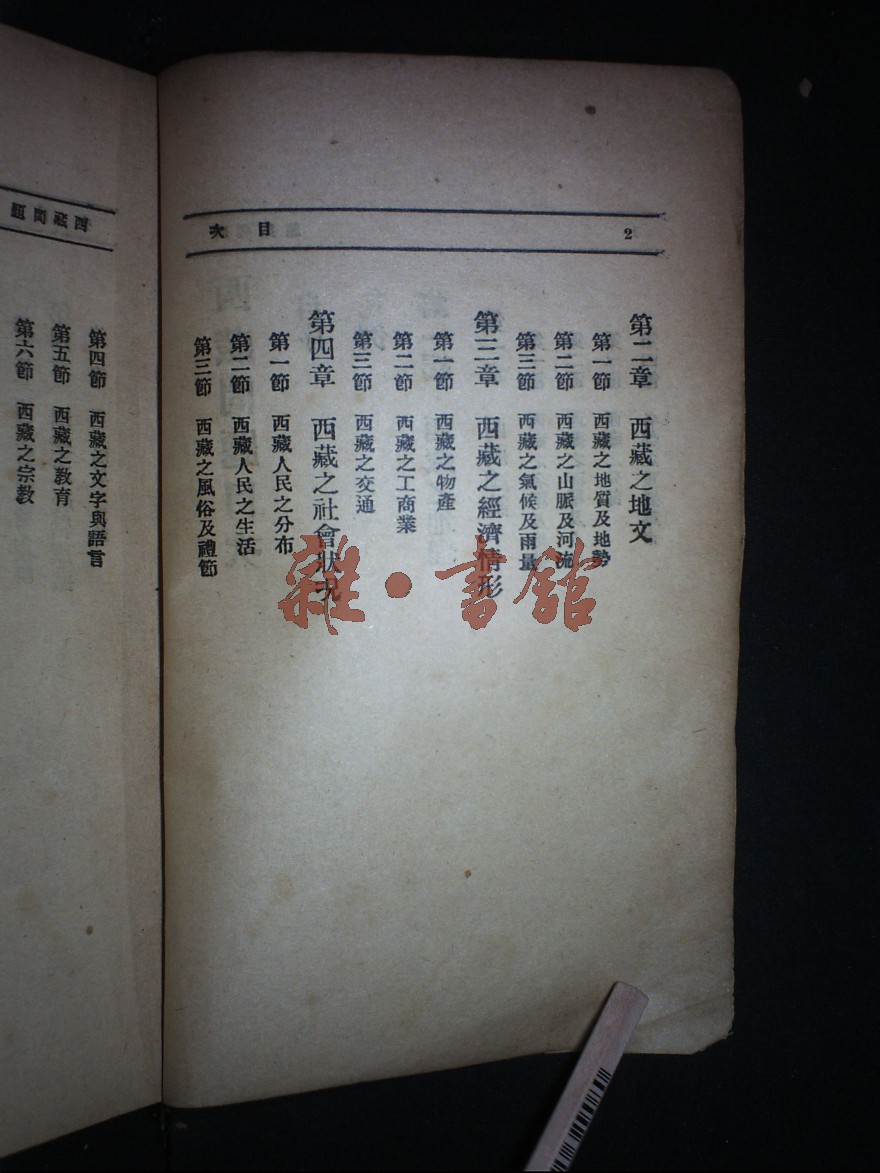 目次
2
第二章 西藏之地文
第一節 西藏之地質及地勢
第二節 西藏之山脈及河流
第三節 西藏之氣候及雨量
第三章 西藏之經濟情形
第一節 西藏之物產
第二節 西藏之工商業
第三節 西藏之交通
第四章 西藏之社會狀況
第一節 西藏人民之分布
第二節 西藏人民之生活
第三節 西藏之風俗及禮節
西藏問題
第四節 西藏之文字與語言
第五節 西藏之教育
第六節 西藏之宗教
雜·書館